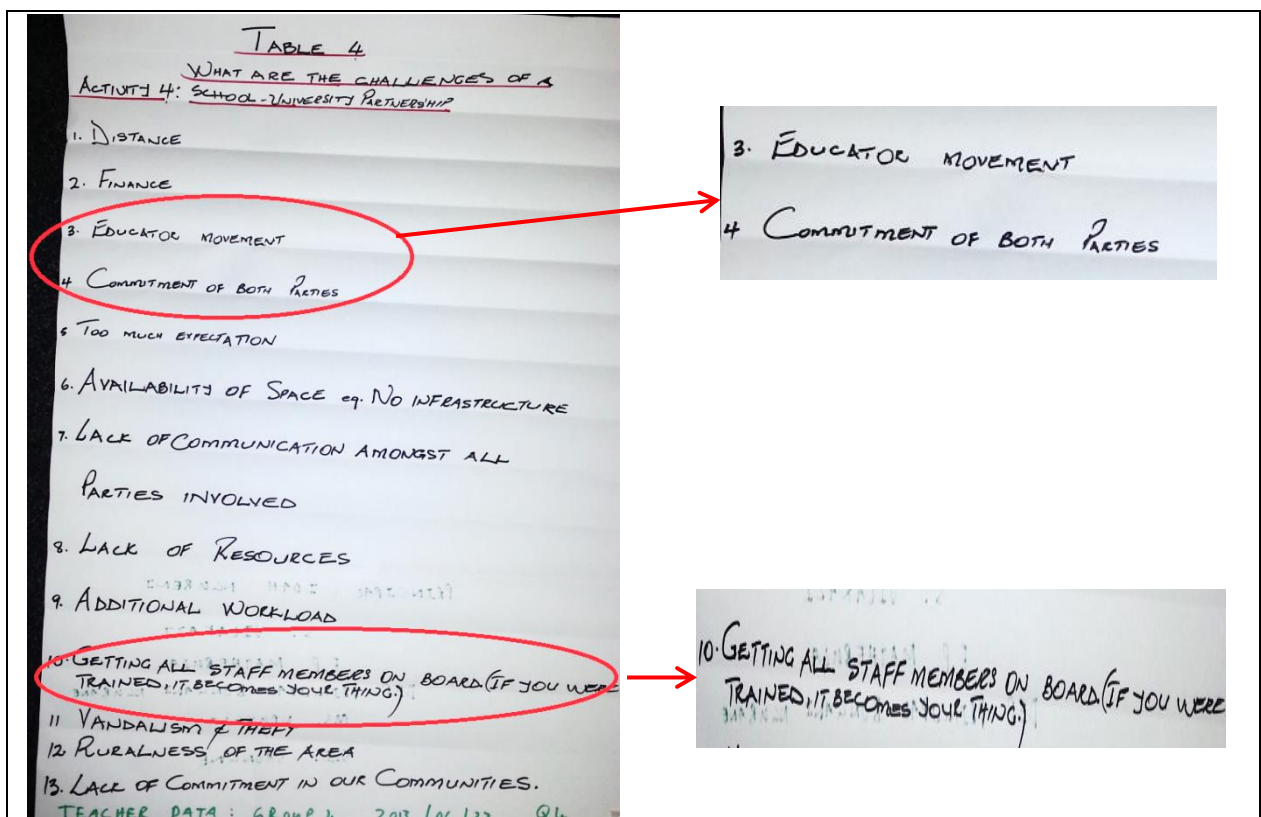 TABLE 4
WHAT ARE THE CHALLENGES OF A
ACTIVITY 4: SCHOOL-UNIVERSITY PARTNERSHIP
1. DISTANCE
2. FINANCE
3. EDUCATOR MOVEMENT
4 COMMITMENT OF BOTH PARTIES
5 TOO MUCH EXPECTATION
6. AVAILABILITY OF SPACE eg. NO INFRASTRUCTURE
7. LACK OF COMMUNICATION AMONGST ALL
PARTIES INVOLVED
8. LACK OF RESOURCES
9. ADDITIONAL WORKLOAD
10. GETTING ALL STAFF MEMBERS ON BOARD (IF YOU WERE
TRAINED, IT BECOMES YOUR THING.)
11 VANDALISM & THEFT
12 RURALNESS OF THE AREA
13. LACK OF COMMITMENT IN OUR COMMUNITIES.
TEACHER DATA: GROUP
3. EDUCATOR MOVEMENT
4 COMMITMENT OF BOTH PARTIES
10. GETTING ALL STAFF MEMBERS ON BOARD (IF YOU WERE
TRAINED, IT BECOMES YOUR THING.)